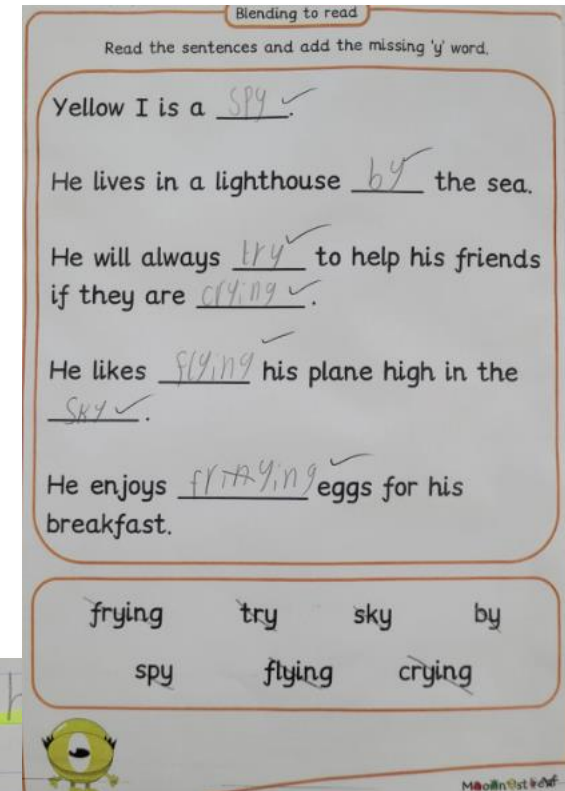 Blending to read
Read the sentences and add the missing 'y' word.
Yellow I is a spy.
He lives in a lighthouse by the sea.
He will always try to help his friends
if they are crying.
He likes flying his plane high in the
sky.
He enjoys frying eggs for his
breakfast.
frying try sky by
spy flying crying